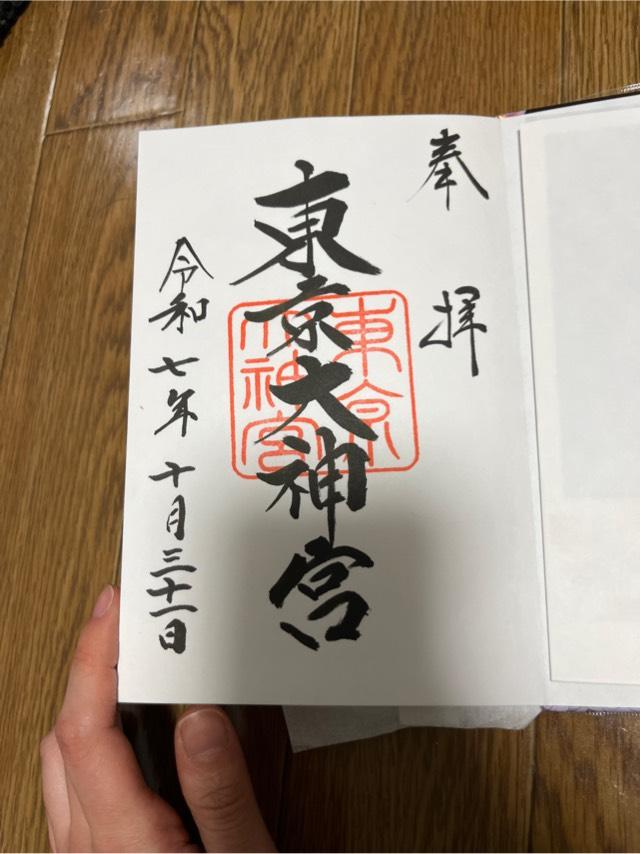 奉拝
東京大神宮
東京大神宮
令和七年十月三十一日